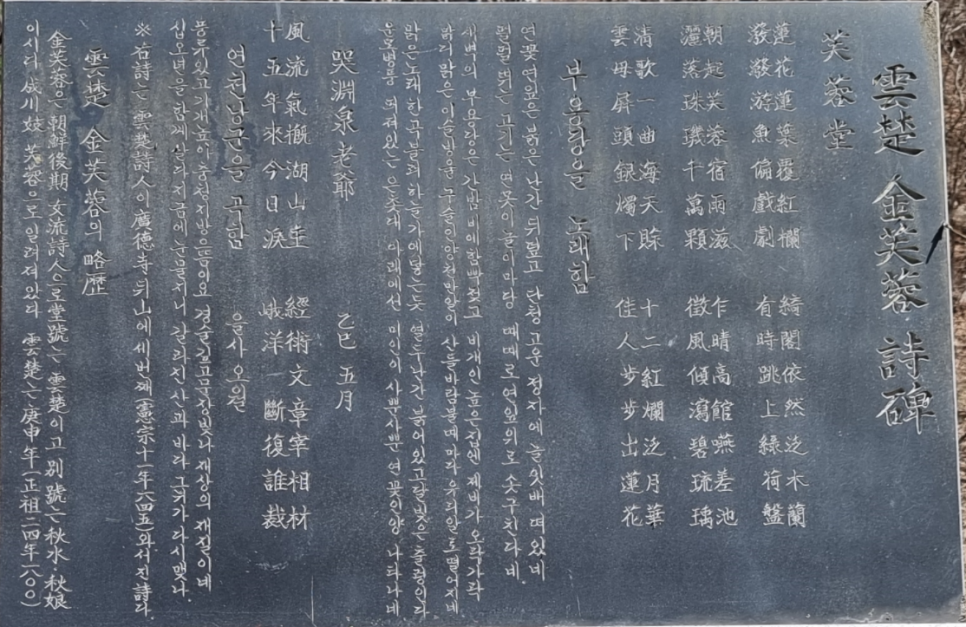 雲楚 金芙蓉 詩碑
芙蓉堂
蓮花蓮葉覆紅欄 綺閣依然泛木蘭
潑潑游魚偏戲劇 有時跳上綠荷盤
朝起芙蓉宿雨滋 乍晴高館燕差池
灑落珠璣千萬顆 微風傾瀉碧琉璃
清歌一曲海天賖 十二紅爛泛月華
雲母屛頭銀燭下 佳人步步出蓮花
부용당을 노래함
연꽃 연잎은 붉은 난간 뒤덮고 단청 고운 정자에 놀잇배 떠 있네
펄펄 뛰는 고기는 연못이 놀이마당 때때로 연잎위로 솟구친다네.
새벽의 부용당은 간밤비에 함빡젖고 비개인 높은집엔 제비가 오락가락
맑디 맑은 이슬방울 구슬인양 천만알이 산들바람불때마다 유리알로 떨어지네
맑은노래 한곡불러 하늘가에 닿는듯 열두난간 붉어있고 달빛은 출렁인다
운모병풍 펴져있는 은촛대 아래에선 미인이 사뿐사뿐 연꽃인양 나타나네
哭淵泉老爺 乙巳 五月
風流氣槪湖山主 經術文章宰相材
十五年來今日淚 峨洋一斷復誰裁
연천낭군을 곡함 을사 오월
풍류있고 기개높아 호중지방 으뜸이요 경술깊고 문장빛나 재상의 재질이네
십오년을 함께 살다 지금에 눈물지니 갈라진 산과 바다 그 뉘가 다시 맺나.
※ 右詩는 雲楚詩人이 廣德寺 뒤山에 세번째 (憲宗十一年一八四五)와서 진 詩라.
雲楚 金芙蓉의 略歷
金芙蓉은 朝鮮後期 女流詩人으로 堂號는 雲楚이고 別號는 秋水 秋娘
이시라 成川妓 芙蓉으로 알려져 있다 雲楚는 庚申年 (正祖二四年一八○○)